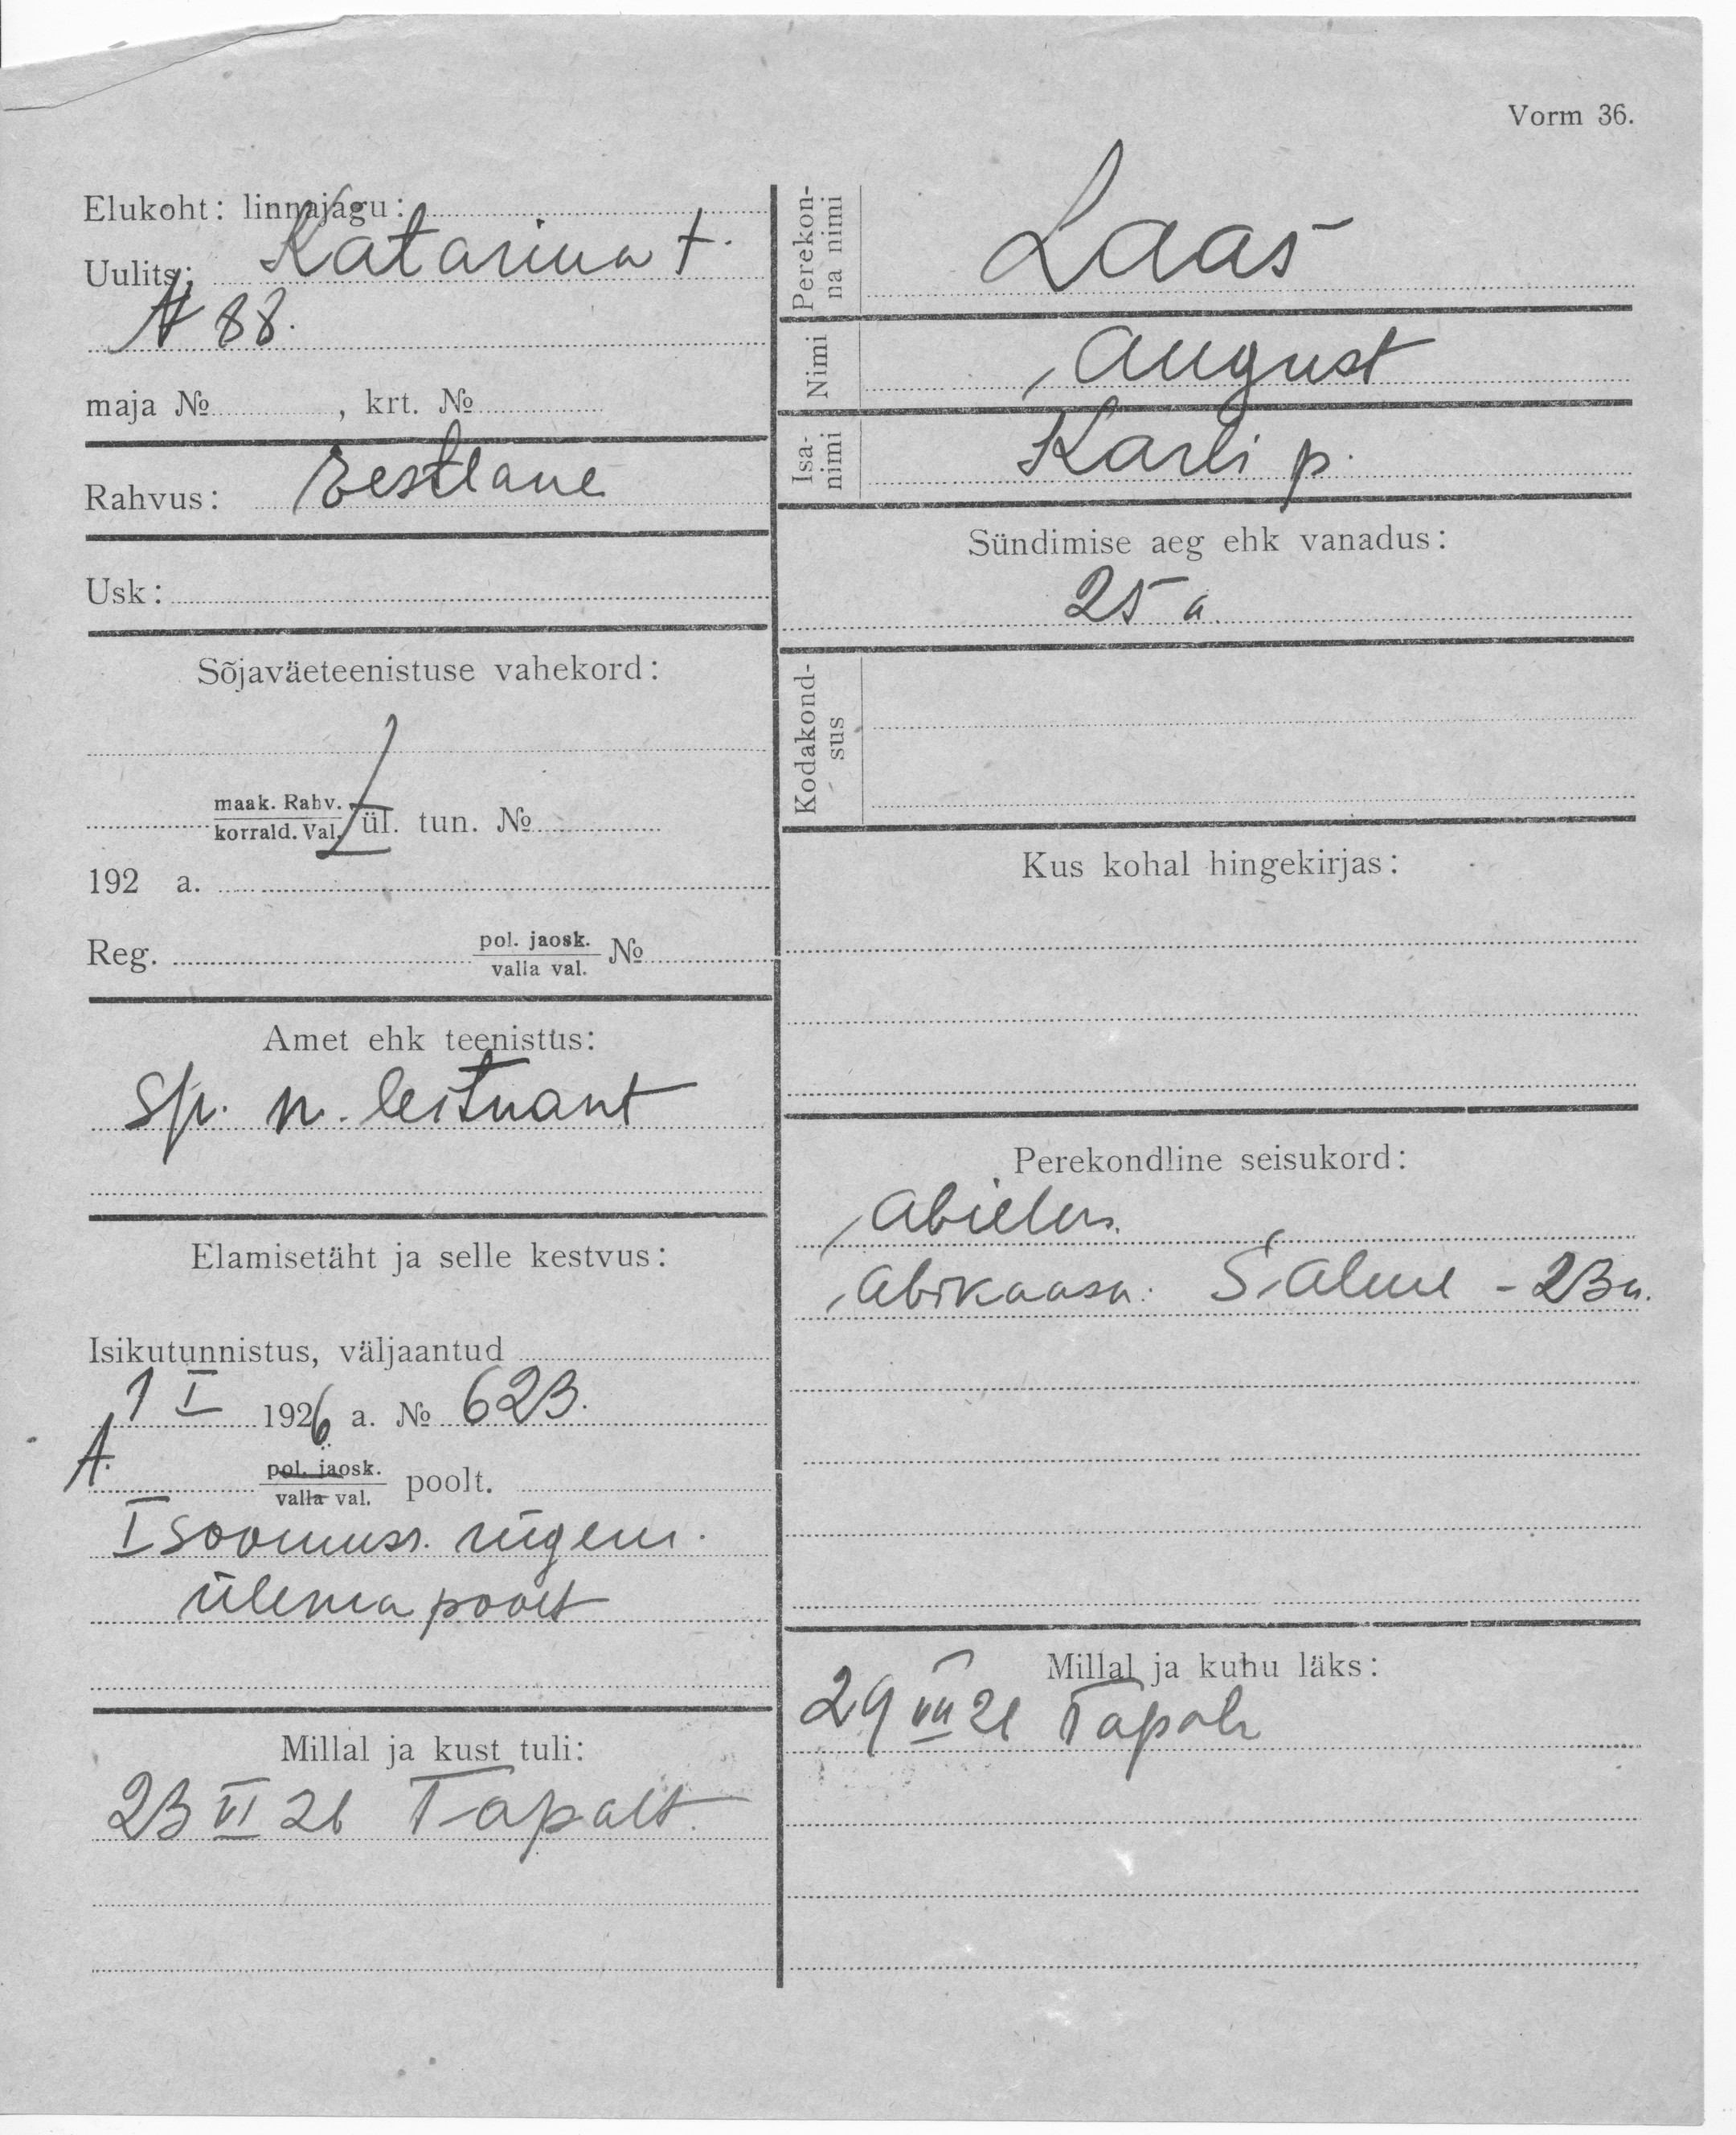 Vorm 36.
Elukoht: linnajagu:
Uulits: Katariina t.
N 88.
maja № , krt. №
Rahvus: Eestlane
Usk:
Sõjaväeteenistuse vahekord:
maak. Rahv.
korrald. Val. ül. tun. №
192 a.
Reg. pol. jaosk. №
valla val.
Amet ehk teenistus:
n. leitnant
Elamisetäht ja selle kestvus:
Isikutunnistus, väljaantud
1 I 1926 a. № 623.
A. pol. jaosk.
valla val. poolt.
I soomusr. rügem.
ülema poolt
Millal ja kust tuli:
23 VI 26 Tapalt.
Perekon-
na nimi Laas
Nimi August
Isa-
nimi Karli p.
Sündimise aeg ehk vanadus:
25 a.
Kodakond-
sus
Kus kohal hingekirjas:
Perekondline seisukord:
Abielus.
Abikaasa: Salme - 23 a.
Millal ja kuhu läks:
29 VII 26 Tapale